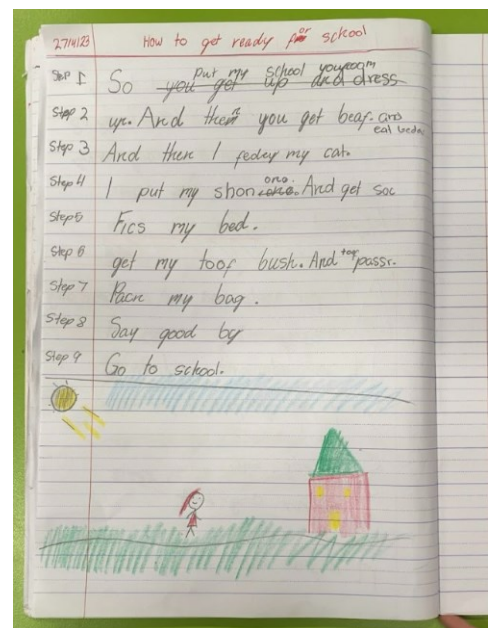 27/4/23 How to get readiy for school
Step 1 So you get up and dress put my school youyoom
Step 2 up. And then you get beaf. and eat
Step 3 And then I fedey my cat.
Step 4 I put my shon one. ono. And get soc
Step 5 Fics my bed.
Step 6 get my toof bush. And top passr.
Step 7 Pack my bag.
Step 8 Say good by
Step 9 Go to school.